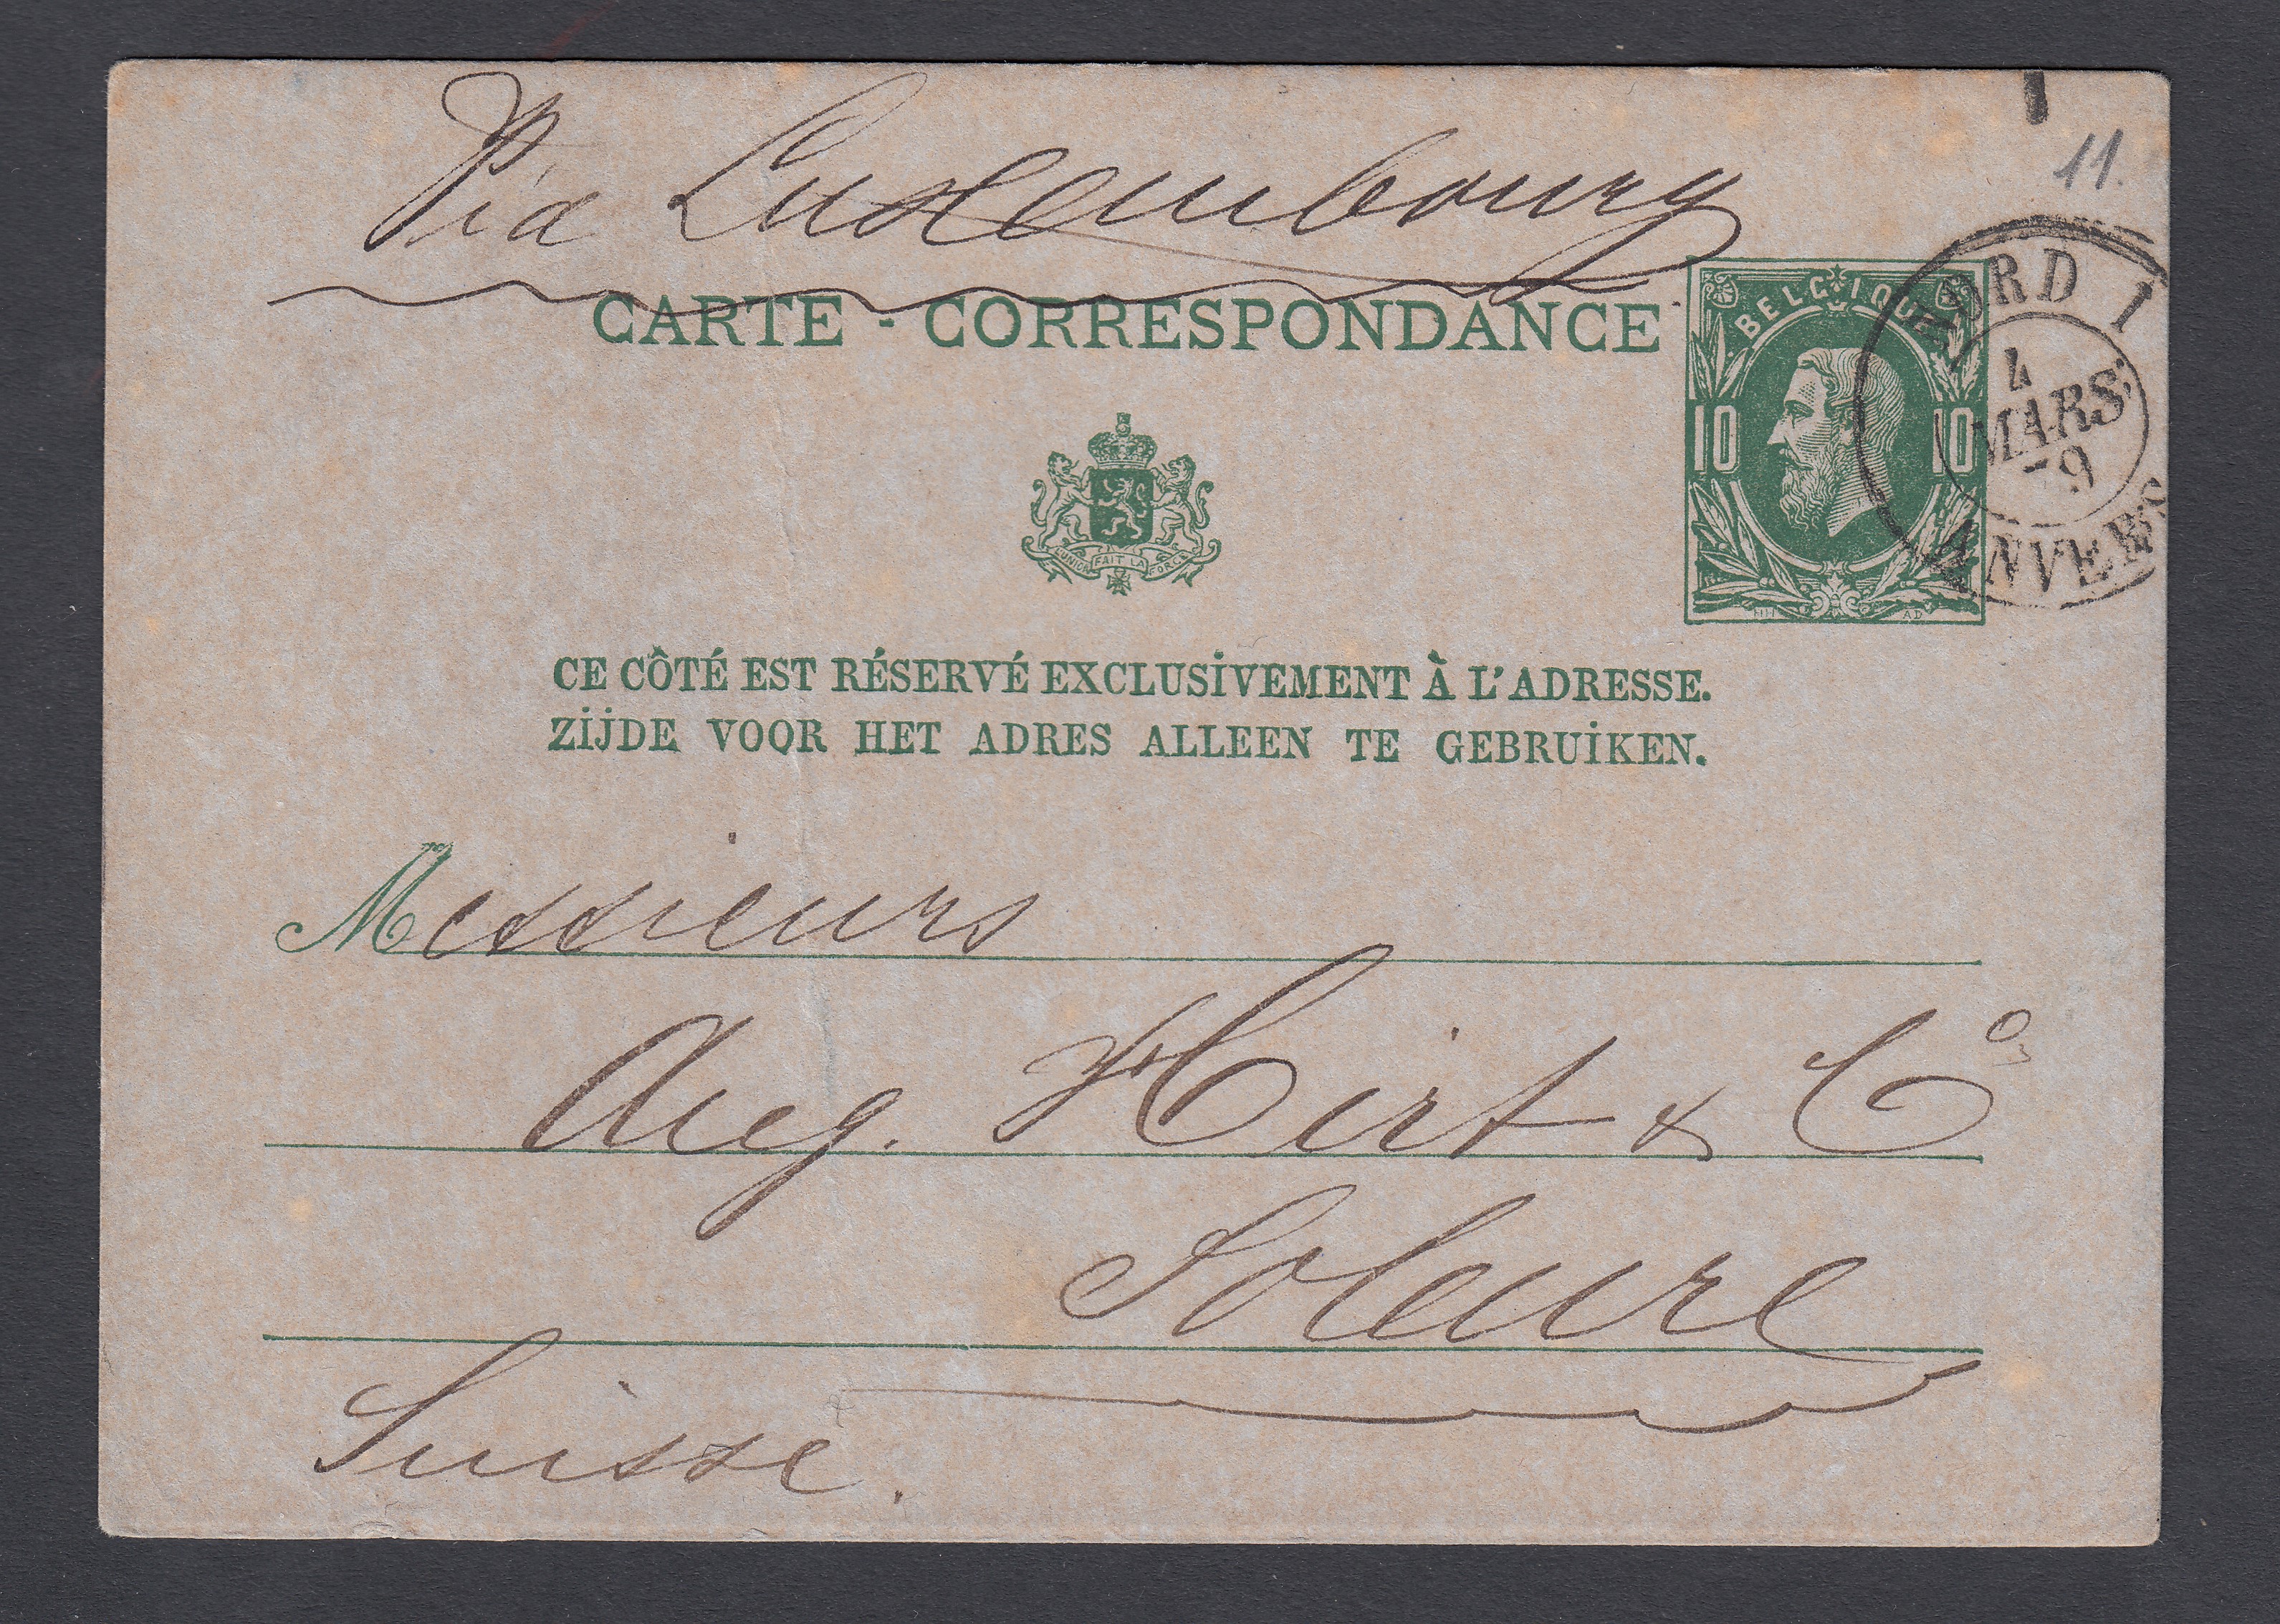 Via Luxembourg
11.
CARTE - CORRESPONDANCE
BELGIQUE
10 10
HH AD
NORD 1
4
MARS
79
ANVERS
L'UNION FAIT LA FORCE
CE CÔTÉ EST RÉSERVÉ EXCLUSIVEMENT À L'ADRESSE.
ZIJDE VOOR HET ADRES ALLEEN TE GEBRUIKEN.
Messieurs
Aug. Hirt & Co
Soleure
Suisse.